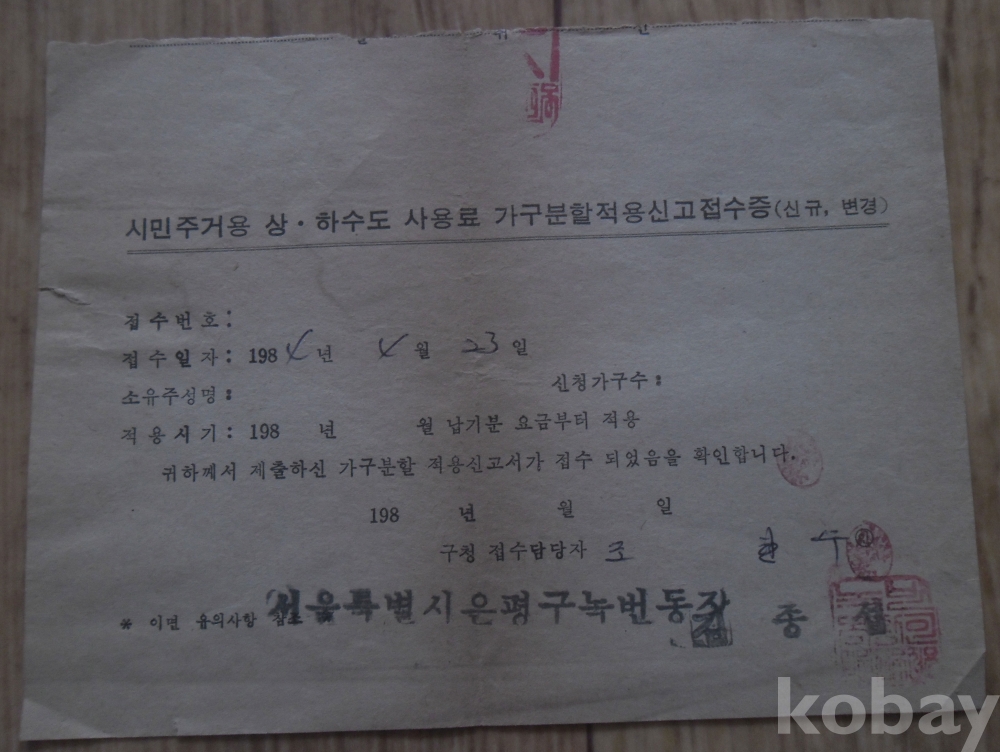 시민주거용 상·하수도 사용료 가구분할적용신고접수증(신규, 변경)
접수번호:
접수일자: 1984년 4월 23일
소유주성명: 신청가구수:
적용시기: 198 년 월 납기분 요금부터 적용
귀하께서 제출하신 가구분할 적용신고서가 접수 되었음을 확인합니다.
198 년 월 일
구청 접수담당자 조
* 이면 유의사항 참조 서울특별시은평구녹번동장 종
kobay